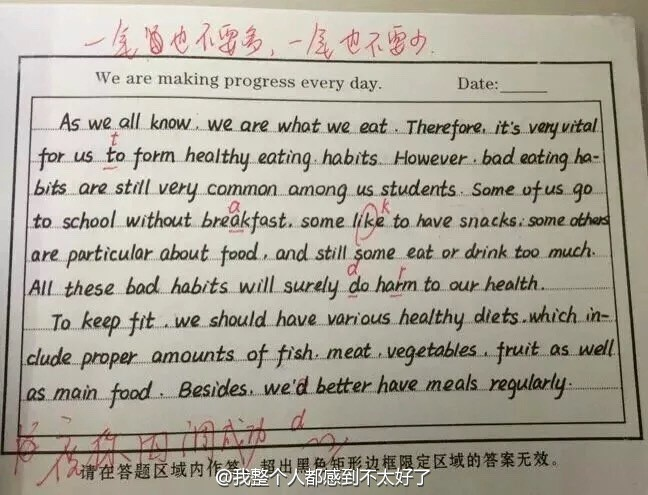 一尾也不要多，一尾也不要少.
We are making progress every day. Date:
As we all know, we are what we eat. Therefore, it's very vital
t
for us to form healthy eating habits. However, bad eating ha-
bits are still very common among us students. Some of us go
a k
to school without breakfast, some like to have snacks; some others
are particular about food, and still some eat or drink too much.
d r
All these bad habits will surely do harm to our health.
To keep fit, we should have various healthy diets, which in-
clude proper amounts of fish, meat, vegetables, fruit as well
as main food. Besides, we'd better have meals regularly.
成功 d
请在答题区域内作答，超出黑色矩形边框限定区域的答案无效。
@我整个人都感到不太好了